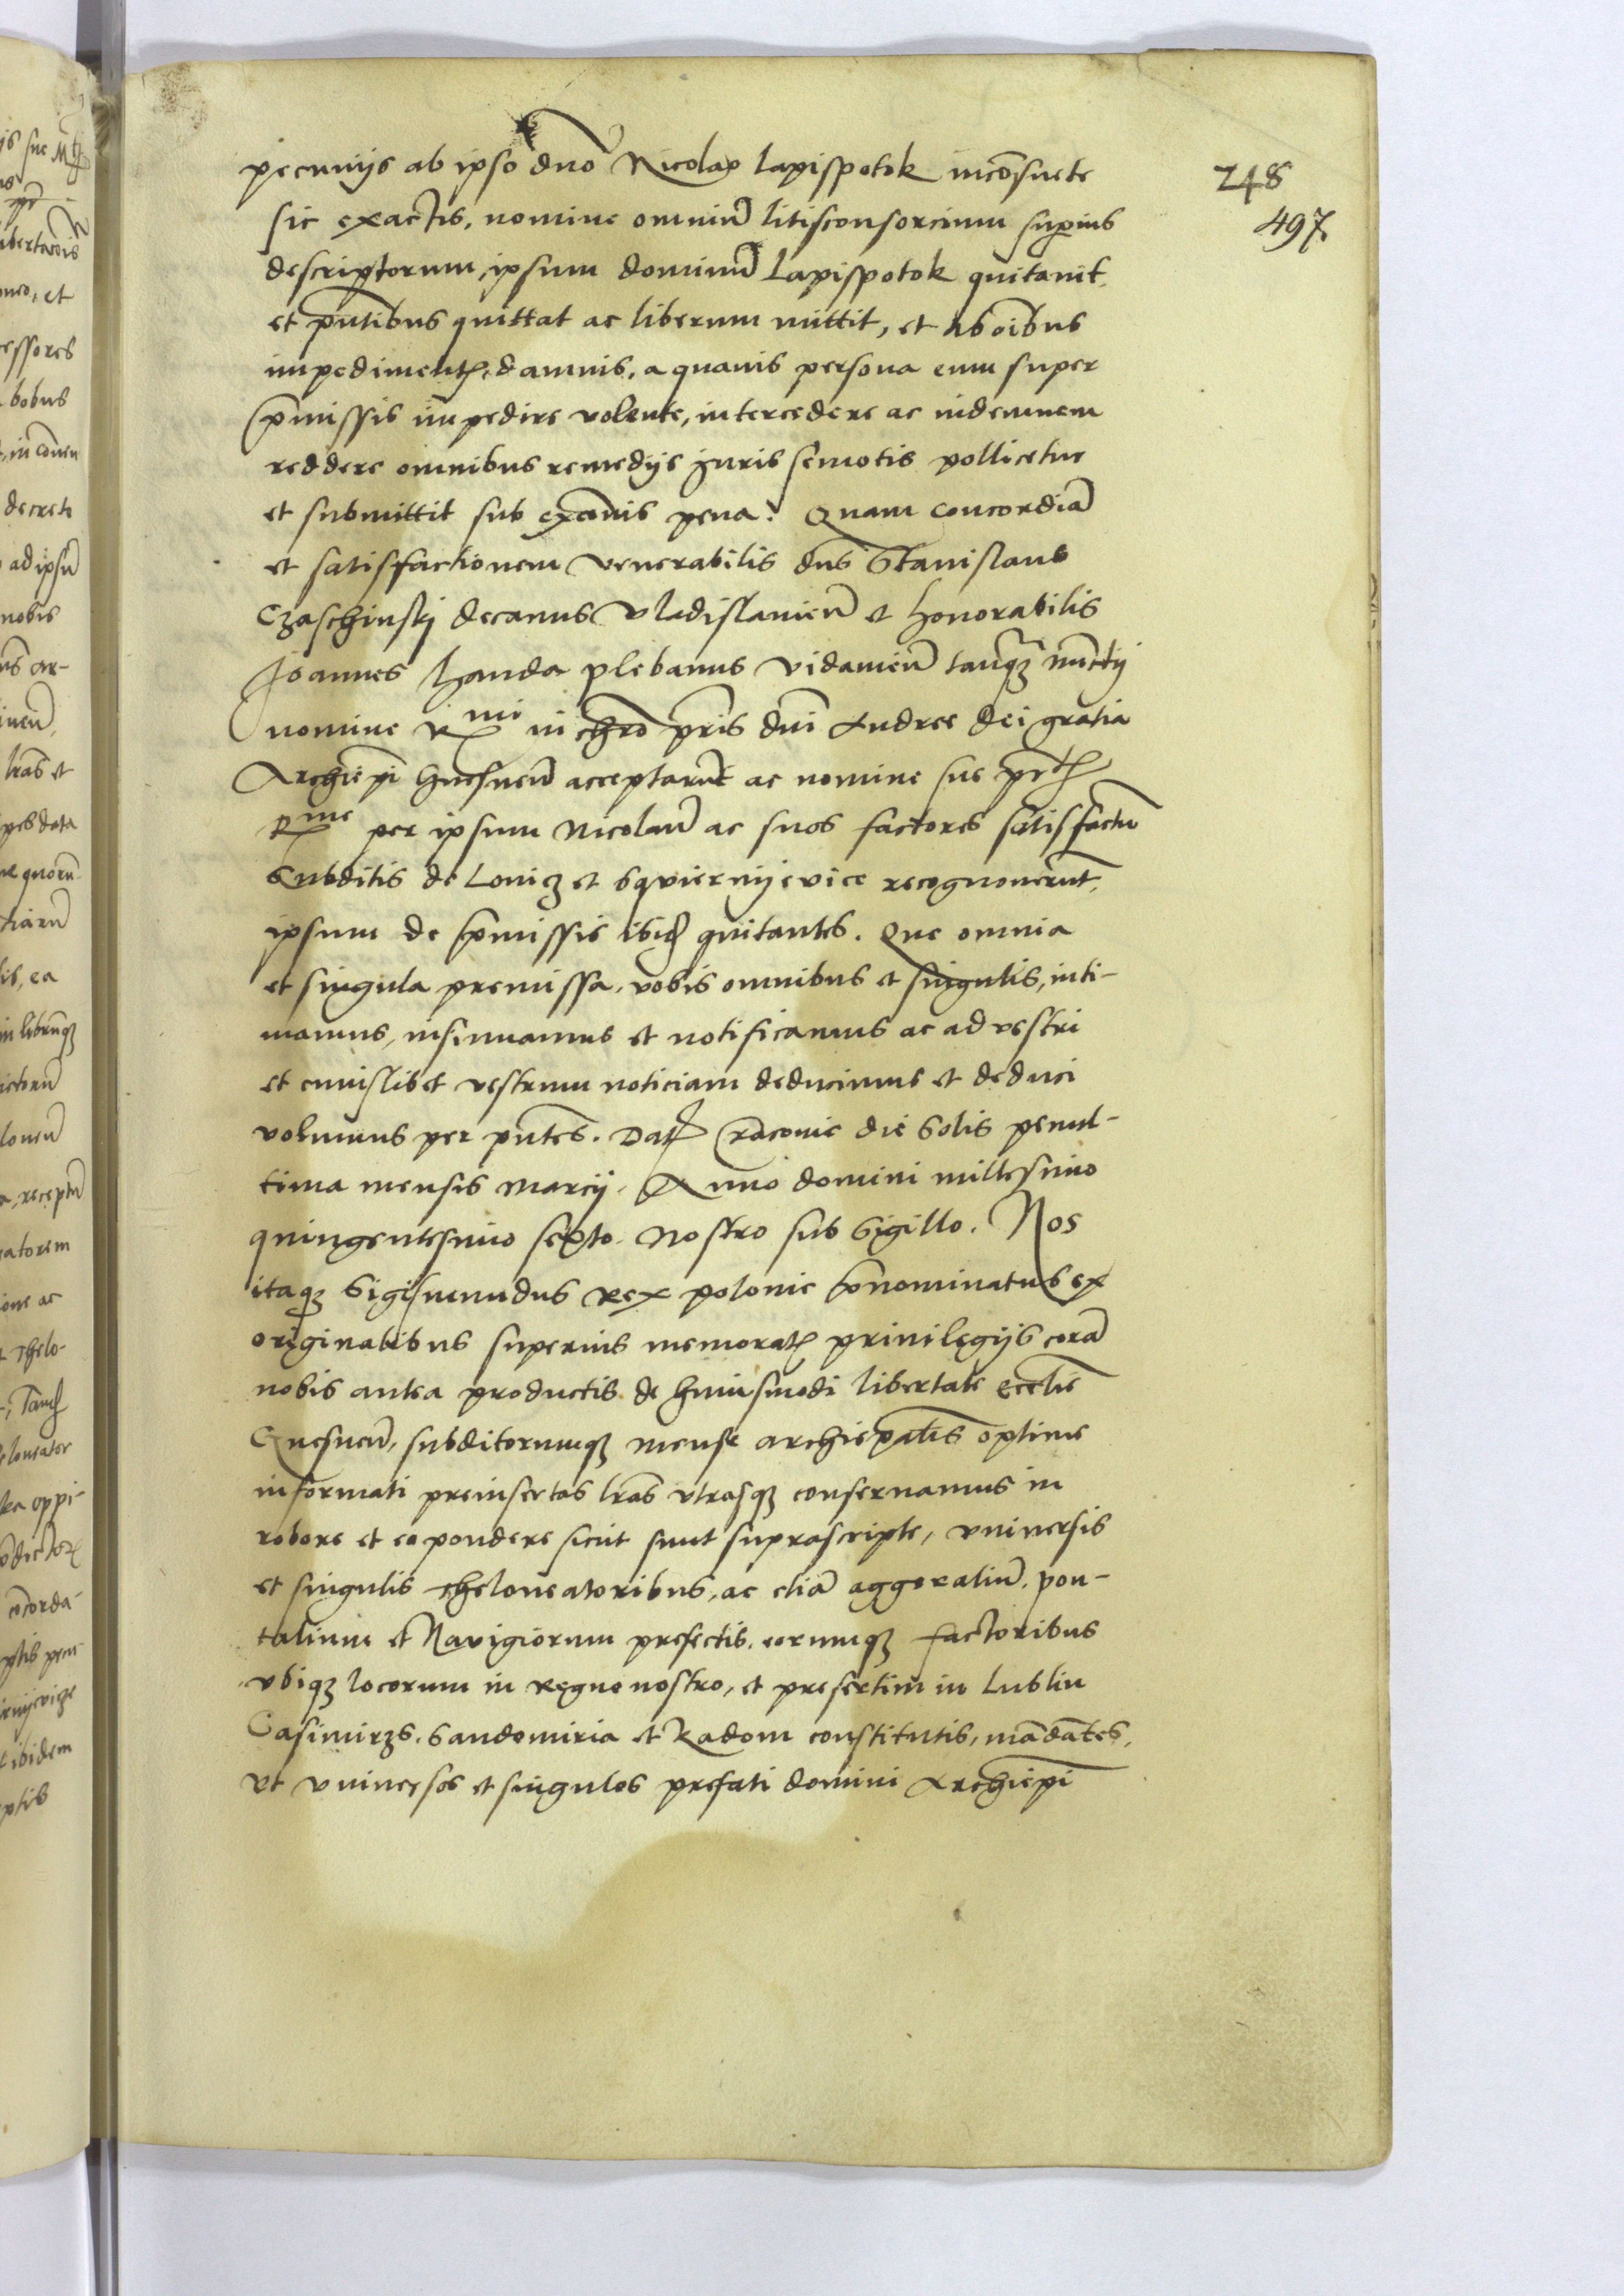 248
497
pecunijs ab ipso dno Nicolao Lapispotok inconsuete
sic exactis, nomine omniū litisconsorcium superius
descriptorum, ipsum dominū Lapispotok quitavit
et pntibus quittat ac liberum mittit, et ab oibus
impediment, damnis, a quavis persona eum super
pmissis impedire volente, intercedere ac indemnem
reddere omnibus remedijs juris semotis pollicetur
et submittit sub excōnis pena. Quam concordiā
et satisfactionem venerabilis dns Stanislaus
Czaschinskj decanus Vladislavien et honorabilis
Joannes Handa plebanus Vidavien tanqz nunctij
nomine Rmi in chro pris dni Andree dei gratia
Archiepi Gnesnen acceptarunt ac nomine sue prt
Rme per ipsum Nicolaū ac suos factores satisfactū
subditis de Lovicz et Sqviernijevice recognoverunt,
ipsum de pmissis ibid quitantes. Que omnia
et singula premissa, vobis omnibus et singulis, inti-
mamus, insinuamus et notificamus ac ad vestri
et cuiuslibet vestrum noticiam deducimus et deduci
volumus per pntes. Dat Cracovie die Solis penul-
tima mensis Marcij. Anno domini millesimo
quingentesimo sexto. Nostro sub Sigillo. Nos
itaqz Sigismundus Rex Polonie pnominatus ex
originalibus superius memorat privilegijs corā
nobis antea productis de huiusmodi libertate eccelie
Gnesnen, subditorumqz mense archiepalis optime
informati preinsertas lras utrasqz conservamus in
robore et eo pondere sicut sunt suprascripte, universis
et singulis theloneatoribus, ac etiā aggeraliū, pon-
talium et Navigiorum prefectis, eorumqz factoribus
ubiqz locorum in Regno nostro, et presertim in Lublin
Casimirzs, Sandomiria et Radom constitutis, mādātes,
ut universos et singulos prefati domini Archiepi